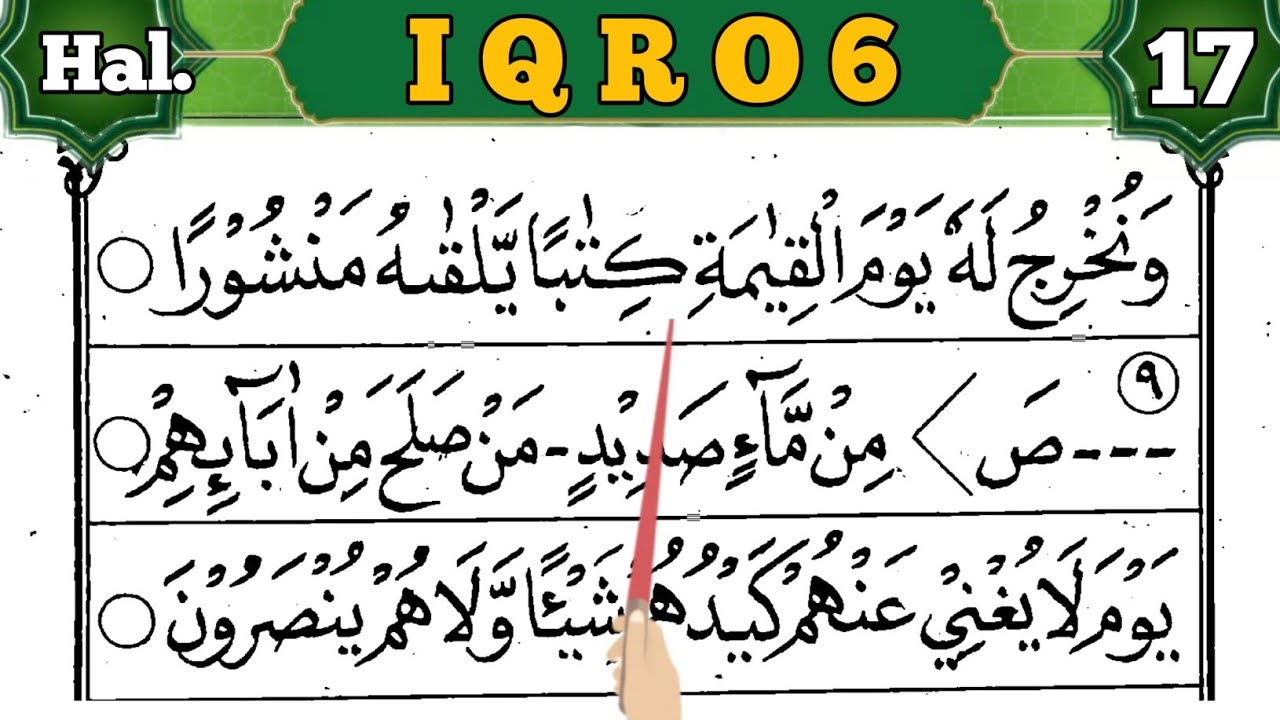 Hal. IQRO 6 17
وَنُخْرِجُ لَهٗ يَوْمَ الْقِيٰمَةِ كِتٰبًا يَّلْقٰىهُ مَنْشُوْرًا
٩
--- صَ > مِنْ مَّآءٍ صَدِيْدٍ - مَنْ صَلَحَ مِنْ اٰبَآئِهِمْ
يَوْمَ لَا يُغْنِيْ عَنْهُمْ كَيْدُهُمْ شَيْئًا وَّلَا هُمْ يُنْصَرُوْنَ